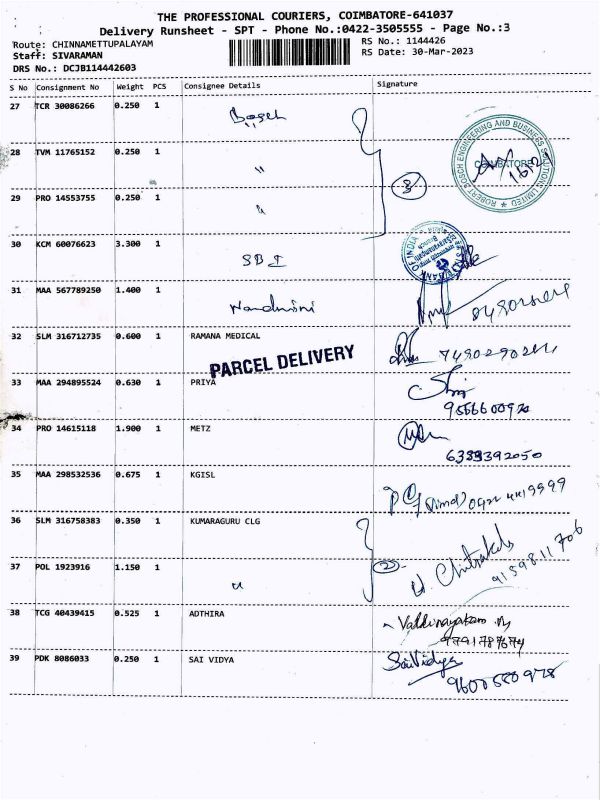 THE PROFESSIONAL COURIERS, COIMBATORE-641037
Delivery Runsheet - SPT - Phone No.:0422-3505555 - Page No.:3
Route: CHINNAMETTUPALAYAM RS No.: 1144426
Staff: SIVARAMAN RS Date: 30-Mar-2023
DRS No.: DCJB114442603
S No Consignment No Weight PCS Consignee Details Signature
27 TCR 30086266 0.250 1 Bosch
28 TVM 11765152 0.250 1 "
ROBERT BOSCH ENGINEERING AND BUSINESS SOLUTIONS LIMITED
COIMBATORE
29 PRO 14553755 0.250 1 "
3
30 KCM 60076623 3.300 1 SBI
31 MAA 567789250 1.400 1 Nandhini
32 SLM 316712735 0.600 1 RAMANA MEDICAL
PARCEL DELIVERY
33 MAA 294895524 0.630 1 PRIYA
34 PRO 14615118 1.900 1 METZ
6383392050
35 MAA 298532536 0.675 1 KGISL
0422 4419999
36 SLM 316758383 0.350 1 KUMARAGURU CLG
37 POL 1923916 1.150 1 " 2
9159811706
38 TCG 40439415 0.525 1 ADTHIRA
39 PDK 8086033 0.250 1 SAI VIDYA SaiVidya
9600580978